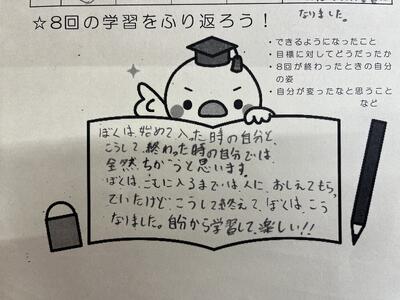 なりました。
☆8回の学習をふり返ろう！
・できるようになったこと
・目標に対してどうだったか
・8回が終わったときの自分
の姿
・自分が変ったなと思うこと
など
ぼくは、始めて入った時の自分と、
こうして、終わった時の自分では、
全然ちがうと思います。
ぼくは、ここに入るまでは、人に、おしえてもらっ
ていたけど、こうして終えて、ぼくは、こう
なりました。自分から学習して、楽しい!!